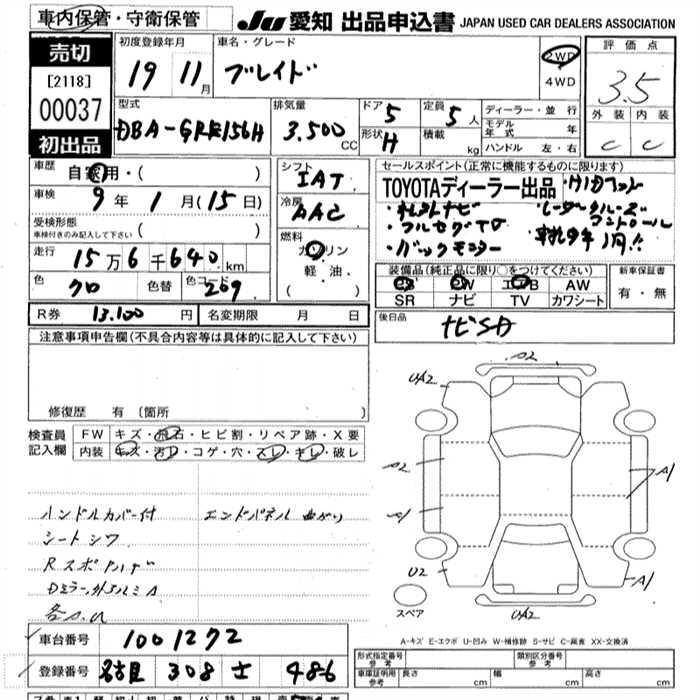 車内保管・守衛保管
JU 愛知 出品申込書 JAPAN USED CAR DEALERS ASSOCIATION
売切
[2118]
00037
初出品
初度登録年月
19 11月
車名・グレード
ブレイド
2WD
4WD
評価点
3.5
外装 内装
C C
型式
DBA-GRE156H
排気量
3.500 CC
ドア 5
形状 H
定員 5 人
積載 kg
ディーラー・並行
モデル年式 年
ハンドル 左・右
車歴 自家用・( )
車検 9年 1月(15日)
受検形態
車検付きのみ記入して下さい ( )
走行 15万6千640km
色 クロ 色替 色コード 209
シフト IAT
冷房 AAC
燃料 ガソリン
軽・油
( )
セールスポイント(正常に機能するものに限ります)
TOYOTAディーラー出品
・フルセグTV
・バックモニター
装備品(純正品に限り○をつけてください)
PS PW エアB AW
SR ナビ TV カワシート
新車保証書
有・無
R券 13.100 円 名変期限 月 日
後日品
ナビSD
注意事項申告欄(不具合内容等は具体的に記入して下さい)
修復歴 有 (箇所 )
検査員記入欄
FW キズ・飛石・ヒビ割・リペア跡・X要
内装 キズ・汚レ・コゲ・穴・スレ・キレ・破レ
ハンドルカバー付 エンドパネル曲がり
シートシワ
A2
UA2
A2
A1
A1
U2
A1
UA2
スペア
A-キズ E-エクボ U-凹み W-補修跡 S-サビ C-腐食 XX-交換済
車台番号 1001272
登録番号 名古屋 308 さ 486
形式指定番号 参考
類別区分番号 参考
車庫証明用 参考 長さ cm 幅 cm 高さ cm